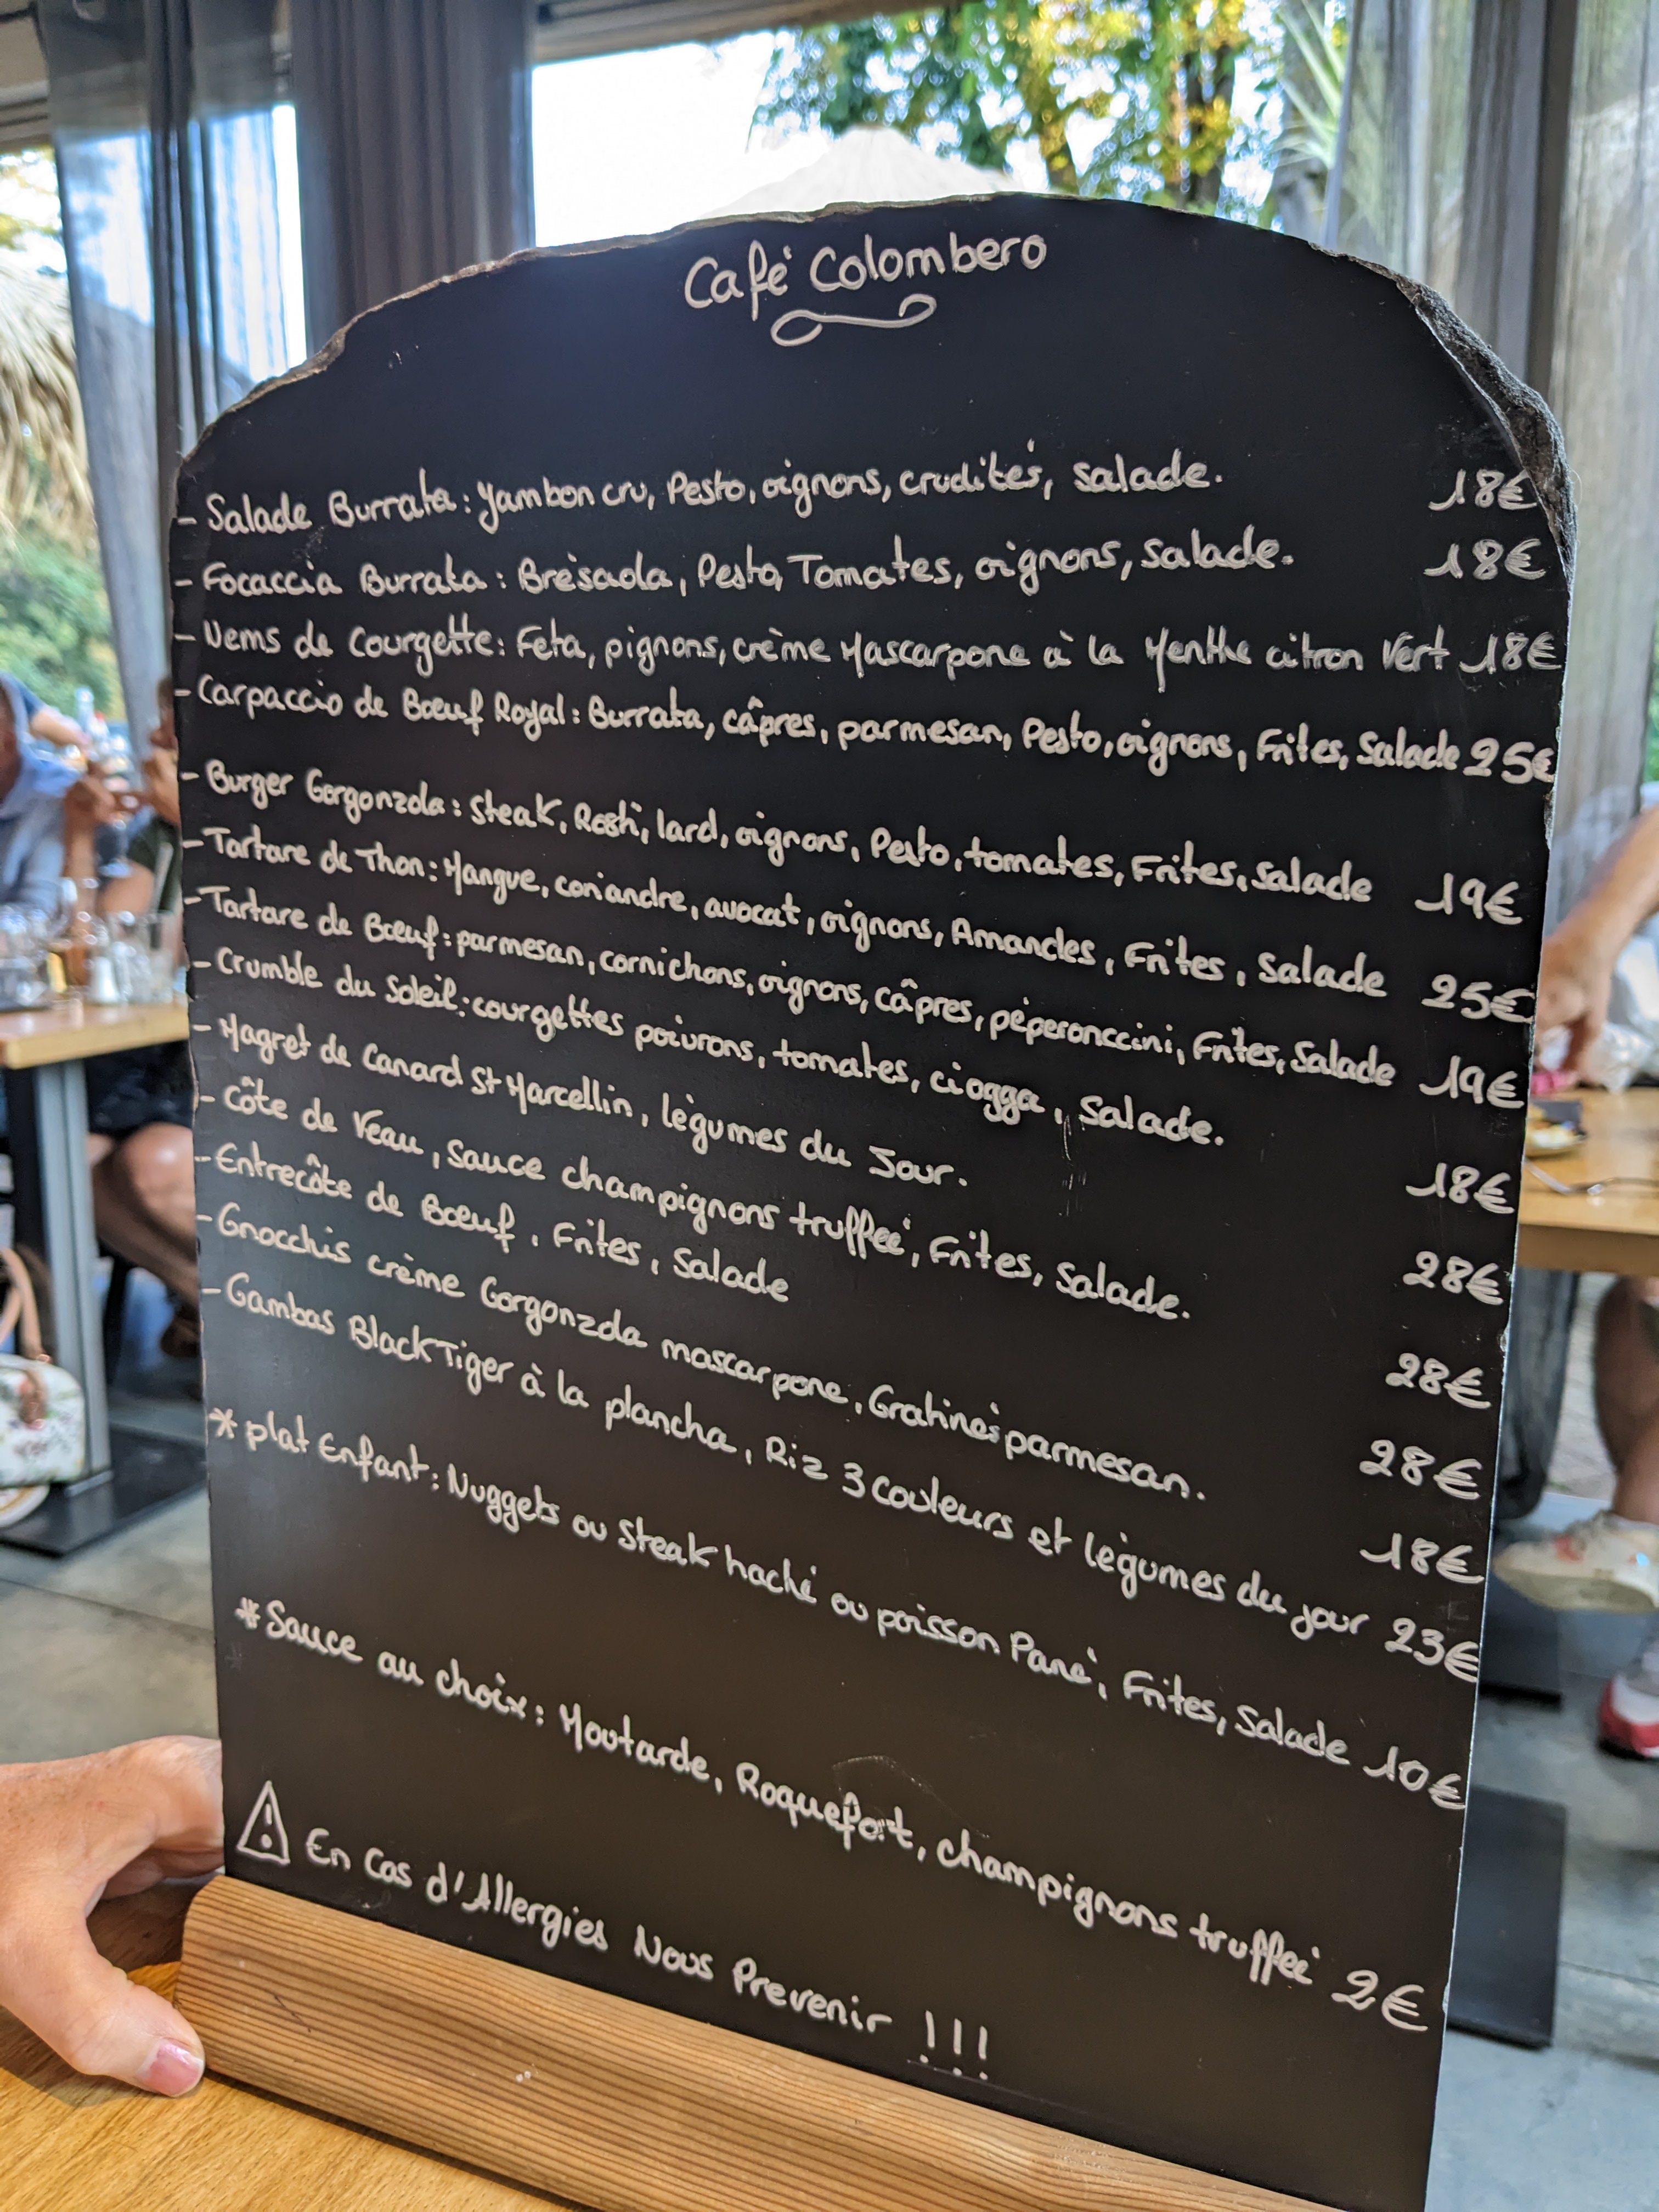 Café Colombero
- Salade Burrata : Jambon cru, Pesto, oignons, crudités, salade. 18€
- Focaccia Burrata : Brésaola, Pesto, Tomates, oignons, salade. 18€
- Nems de Courgette : Feta, pignons, crème Mascarpone à la Menthe citron Vert 18€
- Carpaccio de Bœuf Royal : Burrata, câpres, parmesan, Pesto, oignons, Frites, Salade 25€
- Burger Gorgonzola : Steak, Rosti, lard, oignons, Pesto, tomates, Frites, Salade 19€
- Tartare de Thon : Mangue, coriandre, avocat, oignons, Amandes, Frites, Salade 25€
- Tartare de Bœuf : parmesan, cornichons, oignons, câpres, péperonccini, Frites, Salade 19€
- Crumble du Soleil : courgettes poivrons, tomates, ciogga, Salade. 18€
- Magret de Canard St Marcellin, légumes du Jour. 28€
- Côte de Veau, Sauce champignons truffée, Frites, Salade. 28€
- Entrecôte de Bœuf, Frites, Salade 28€
- Gnocchis crème Gorgonzola mascarpone, Gratinés parmesan. 18€
- Gambas Black Tiger à la plancha, Riz 3 couleurs et légumes du jour 23€
* plat Enfant : Nuggets ou Steak haché ou poisson Pané, Frites, Salade 10€
* Sauce au choix : Moutarde, Roquefort, champignons truffée 2€
⚠ En Cas d'Allergies Nous Prevenir !!!